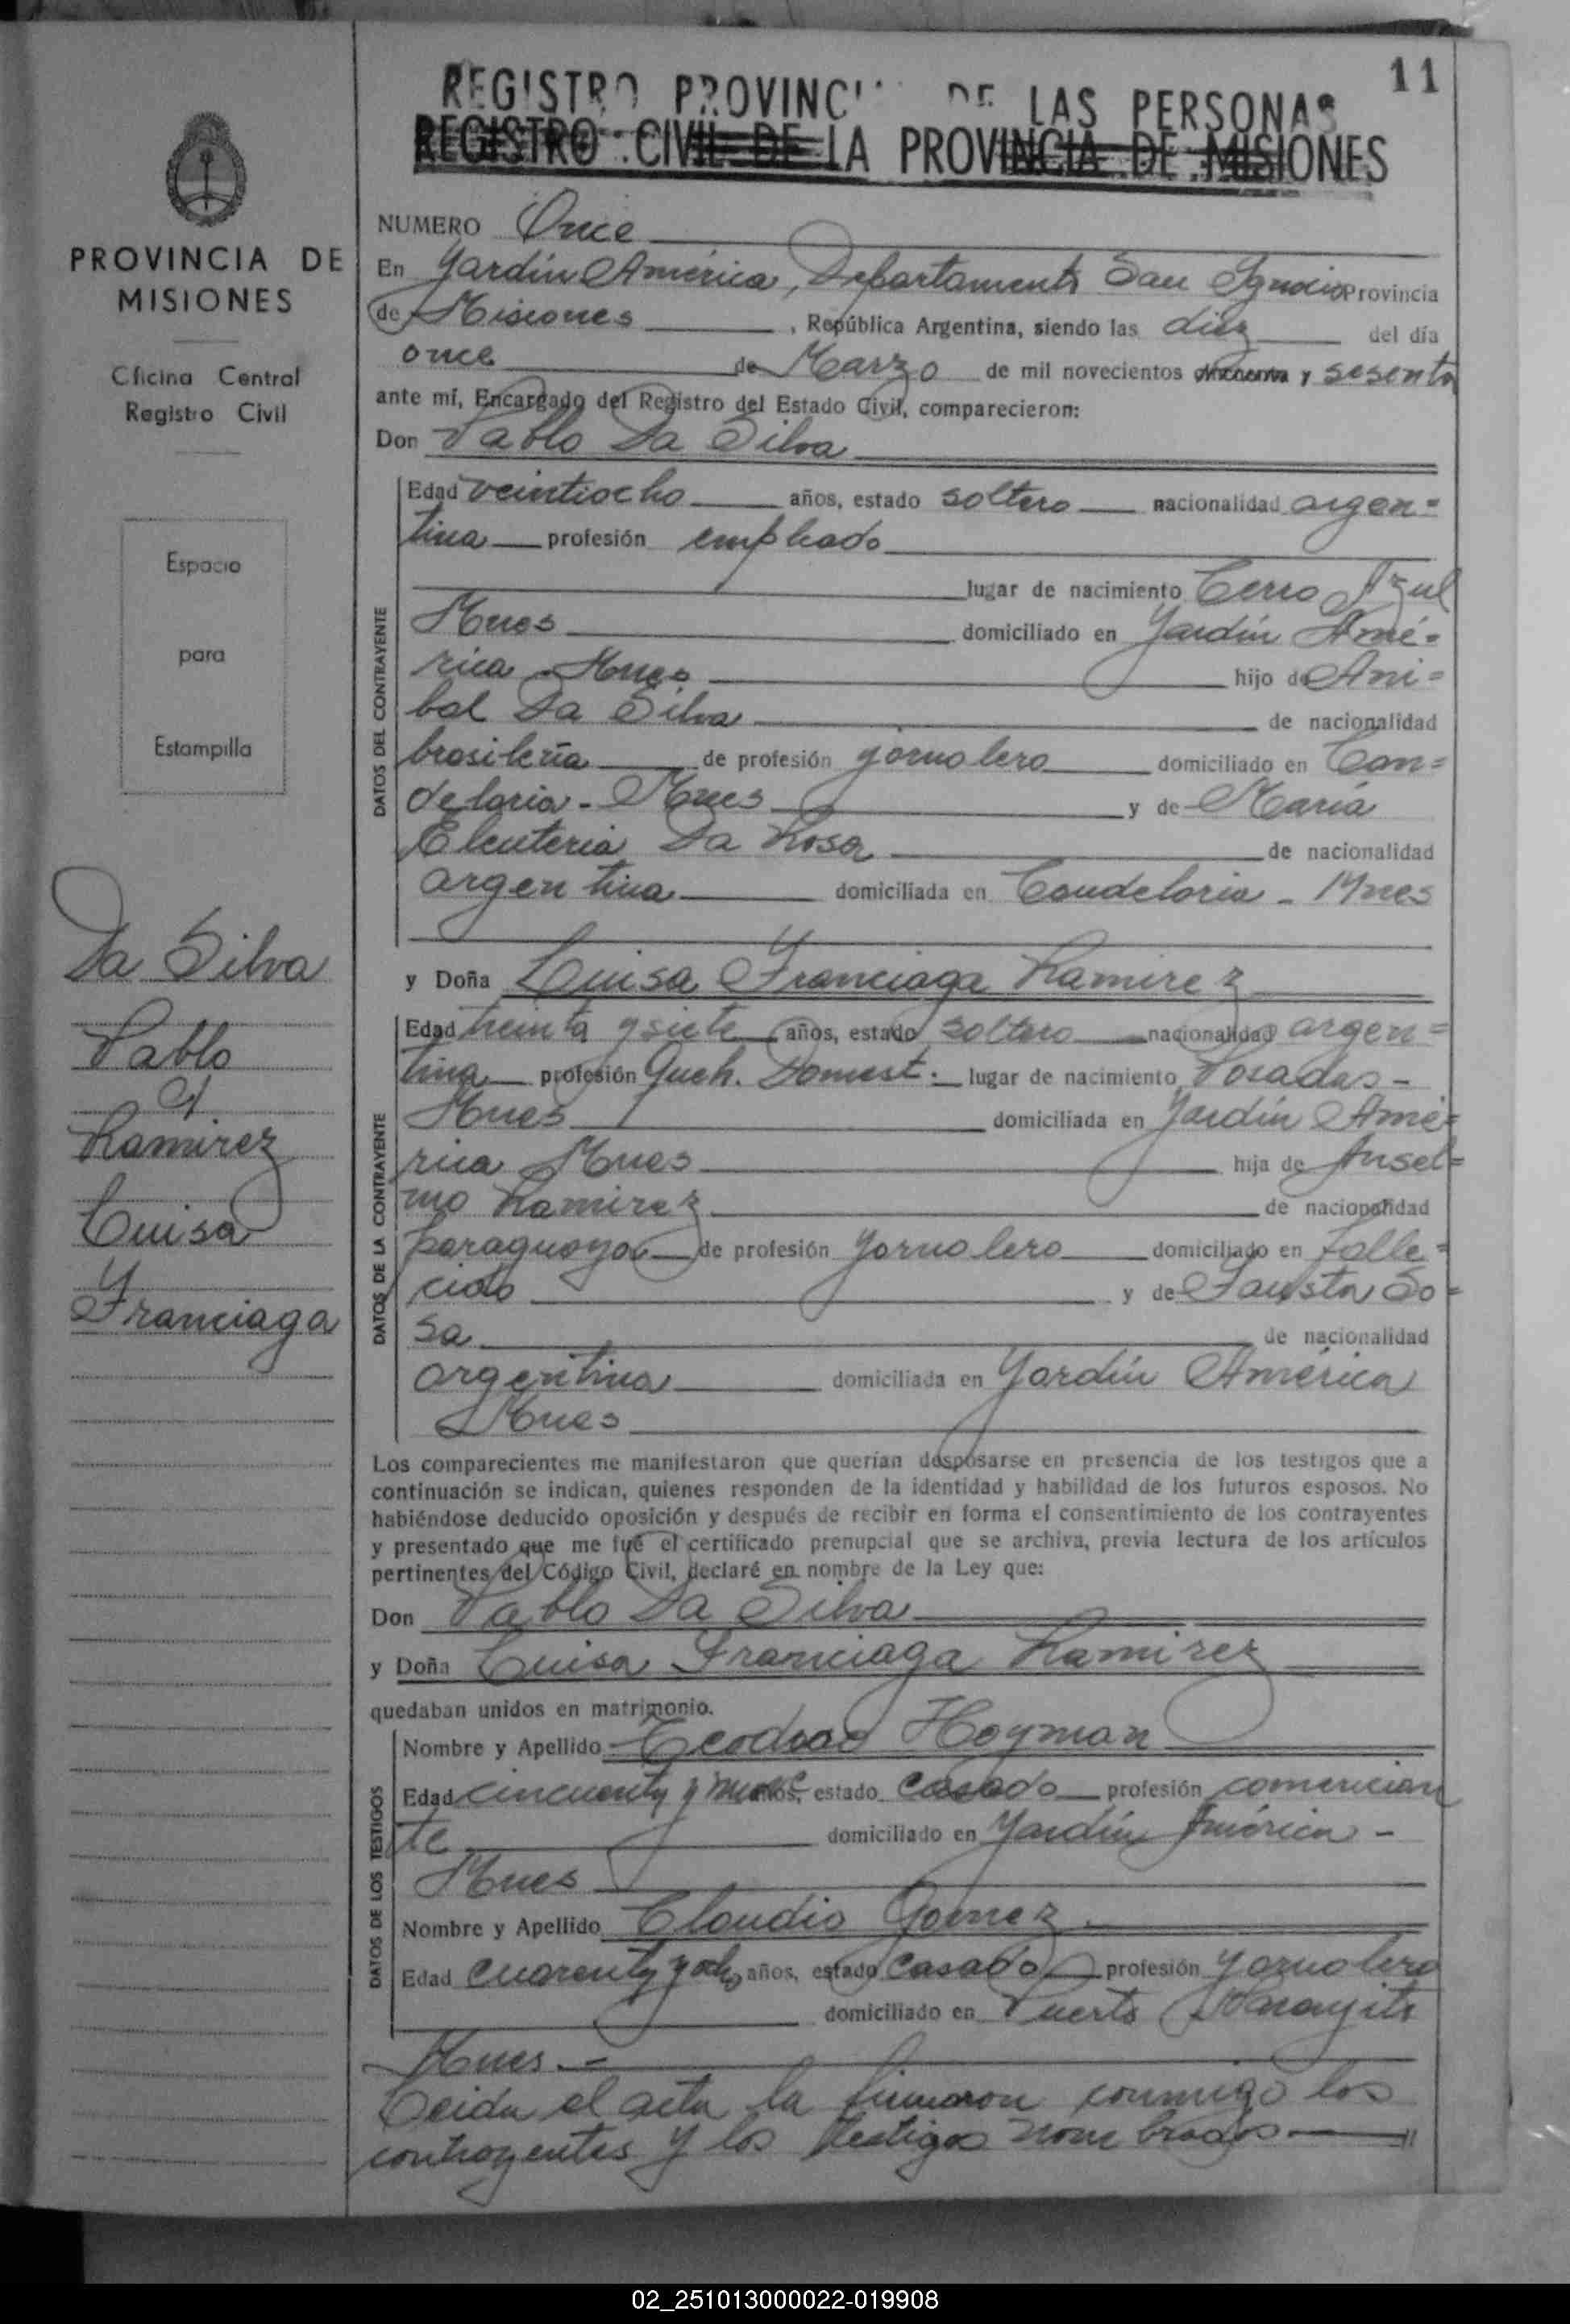 11
REGISTRO PROVINCI DE LAS PERSONAS
REGISTRO CIVIL DE LA PROVINCIA DE MISIONES
PROVINCIA DE
MISIONES
Oficina Central
Registro Civil
Espacio
para
Estampilla
Da Silva
Pablo
y
Ramirez
Luisa
Franciaga
NUMERO Once
En Jardín América, Departamento San Ignacio Provincia
de Misiones , República Argentina, siendo las diez del día
once de Marzo de mil novecientos y sesenta
ante mí, Encargado del Registro del Estado Civil, comparecieron:
Don Pablo Da Silva
DATOS DEL CONTRAYENTE
Edad veintiocho años, estado soltero nacionalidad argen=
tina profesión empleado
lugar de nacimiento Cerro Azul
Mnes domiciliado en Jardín Amé=
rica Mnes hijo de Ani=
bal Da Silva de nacionalidad
brasileña de profesión jornalero domiciliado en Can=
delaria - Mnes y de María
Eleuteria Da Rosa de nacionalidad
argentina domiciliada en Candelaria - Mnes
y Doña Luisa Franciaga Ramirez
DATOS DE LA CONTRAYENTE
Edad treinta y siete años, estado soltera nacionalidad argen=
tina profesión Queh. Domest. lugar de nacimiento Posadas -
Mnes domiciliada en Jardín Amé=
rica Mnes hija de Ansel=
mo Ramirez de nacionalidad
paraguaya de profesión jornalero domiciliado en falle=
cido y de Fausta So=
sa de nacionalidad
argentina domiciliada en Jardín América
Mnes
Los comparecientes me manifestaron que querían desposarse en presencia de los testigos que a
continuación se indican, quienes responden de la identidad y habilidad de los futuros esposos. No
habiéndose deducido oposición y después de recibir en forma el consentimiento de los contrayentes
y presentado que me fué el certificado prenupcial que se archiva, previa lectura de los artículos
pertinentes del Código Civil, declaré en nombre de la Ley que:
Don Pablo Da Silva
y Doña Luisa Franciaga Ramirez
quedaban unidos en matrimonio.
DATOS DE LOS TESTIGOS
Nombre y Apellido Hoyman
Edad cincuenta y nueve años, estado casado profesión comercian
te domiciliado en Jardín América -
Mnes
Nombre y Apellido Claudio Gomez
Edad cuarenta y ocho años, estado casado profesión jornalero
domiciliado en Puerto Naranjito
Mnes. -
Leida el acta la firmaron conmigo los
contrayentes y los testigos nombrados
02_251013000022-019908